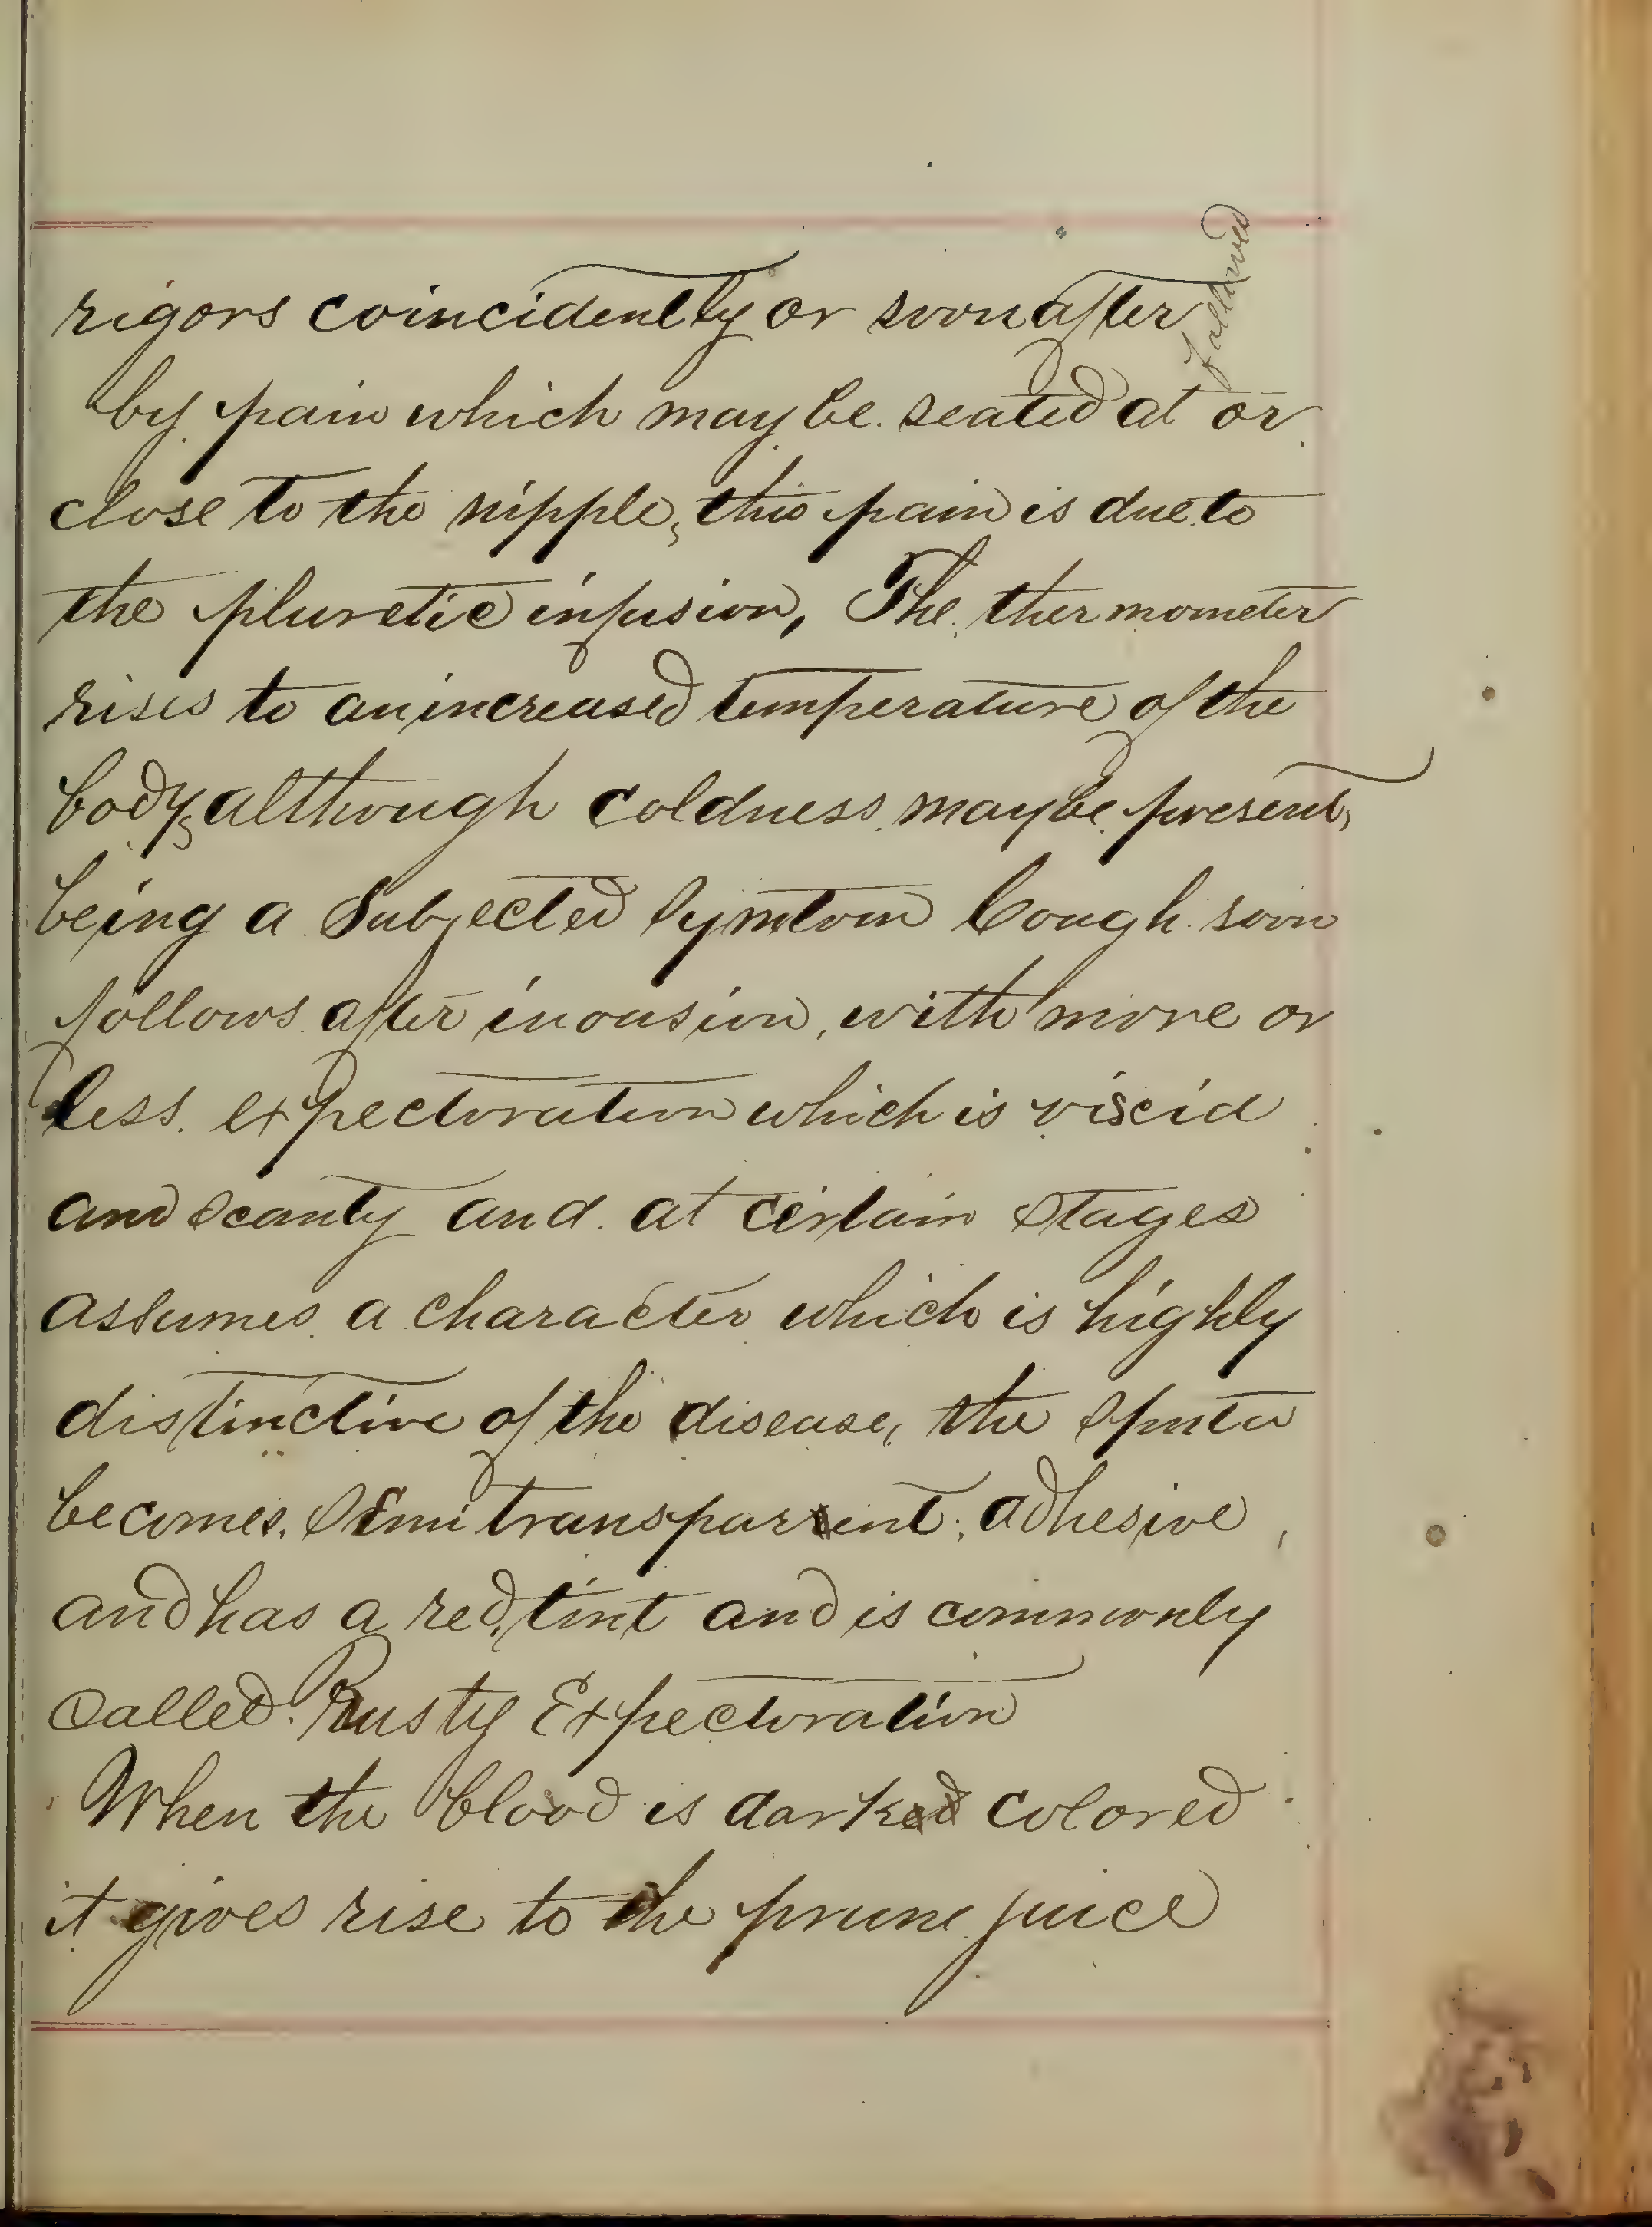 rigors coincidently or soon after followed
by pain which may be seated at or
close to the nipple, this pain is due to
the pluretic infusion, The thermometer
rises to an increased temperature of the
body, although coldness may be present,
being a Subjected Symtom Cough soon
follows after invasion, with more or
less expectoration which is viscid
and scanty and at certain stages
assumes a character which is highly
distinctive of the disease, the sputa
becomes Semi transparent, adhesive,
and has a red, tint and is commonly
called Rusty Expectoration
When the blood is dark colored
it gives rise to the prune juice